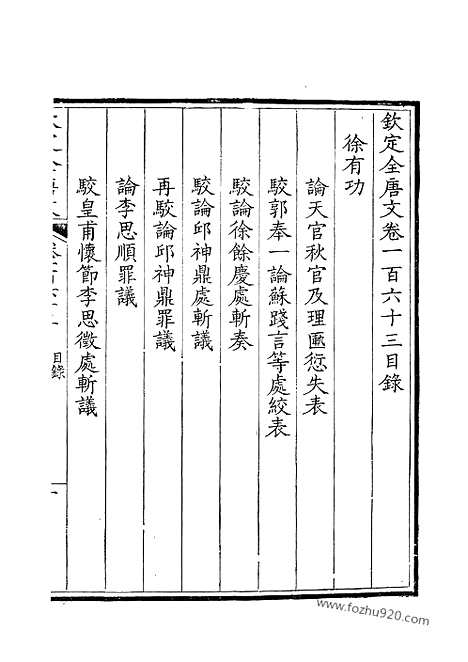 欽定全唐文卷一百六十三目錄
徐有功
論天官秋官及理匭愆失表
駮郭奉一論蘇踐言等處絞表
駮論徐餘慶處斬奏
駮論邱神鼎處斬議
再駮論邱神鼎罪議
論李思順罪議
駮皇甫懷節李思徵處斬議
目錄
www.fozhu920.com